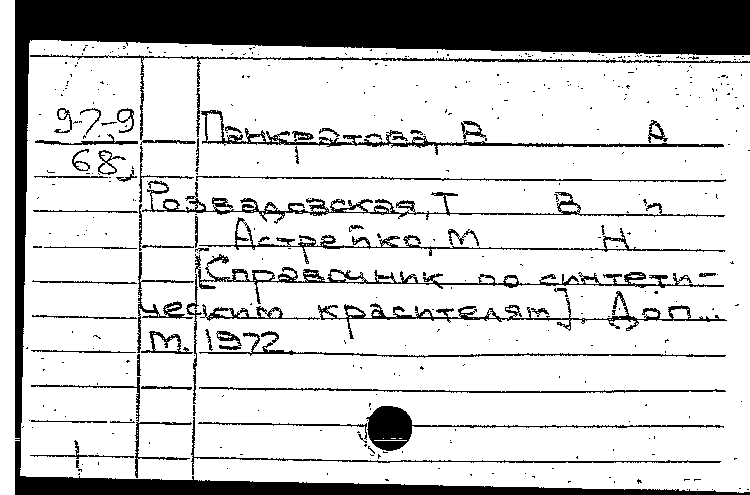 97-9
68
Панкратова, В А
Розвадовская, Т В и
Астрейко, М Н
[Справочник по синтети-
ческим красителям]. Доп...
М. 1972.